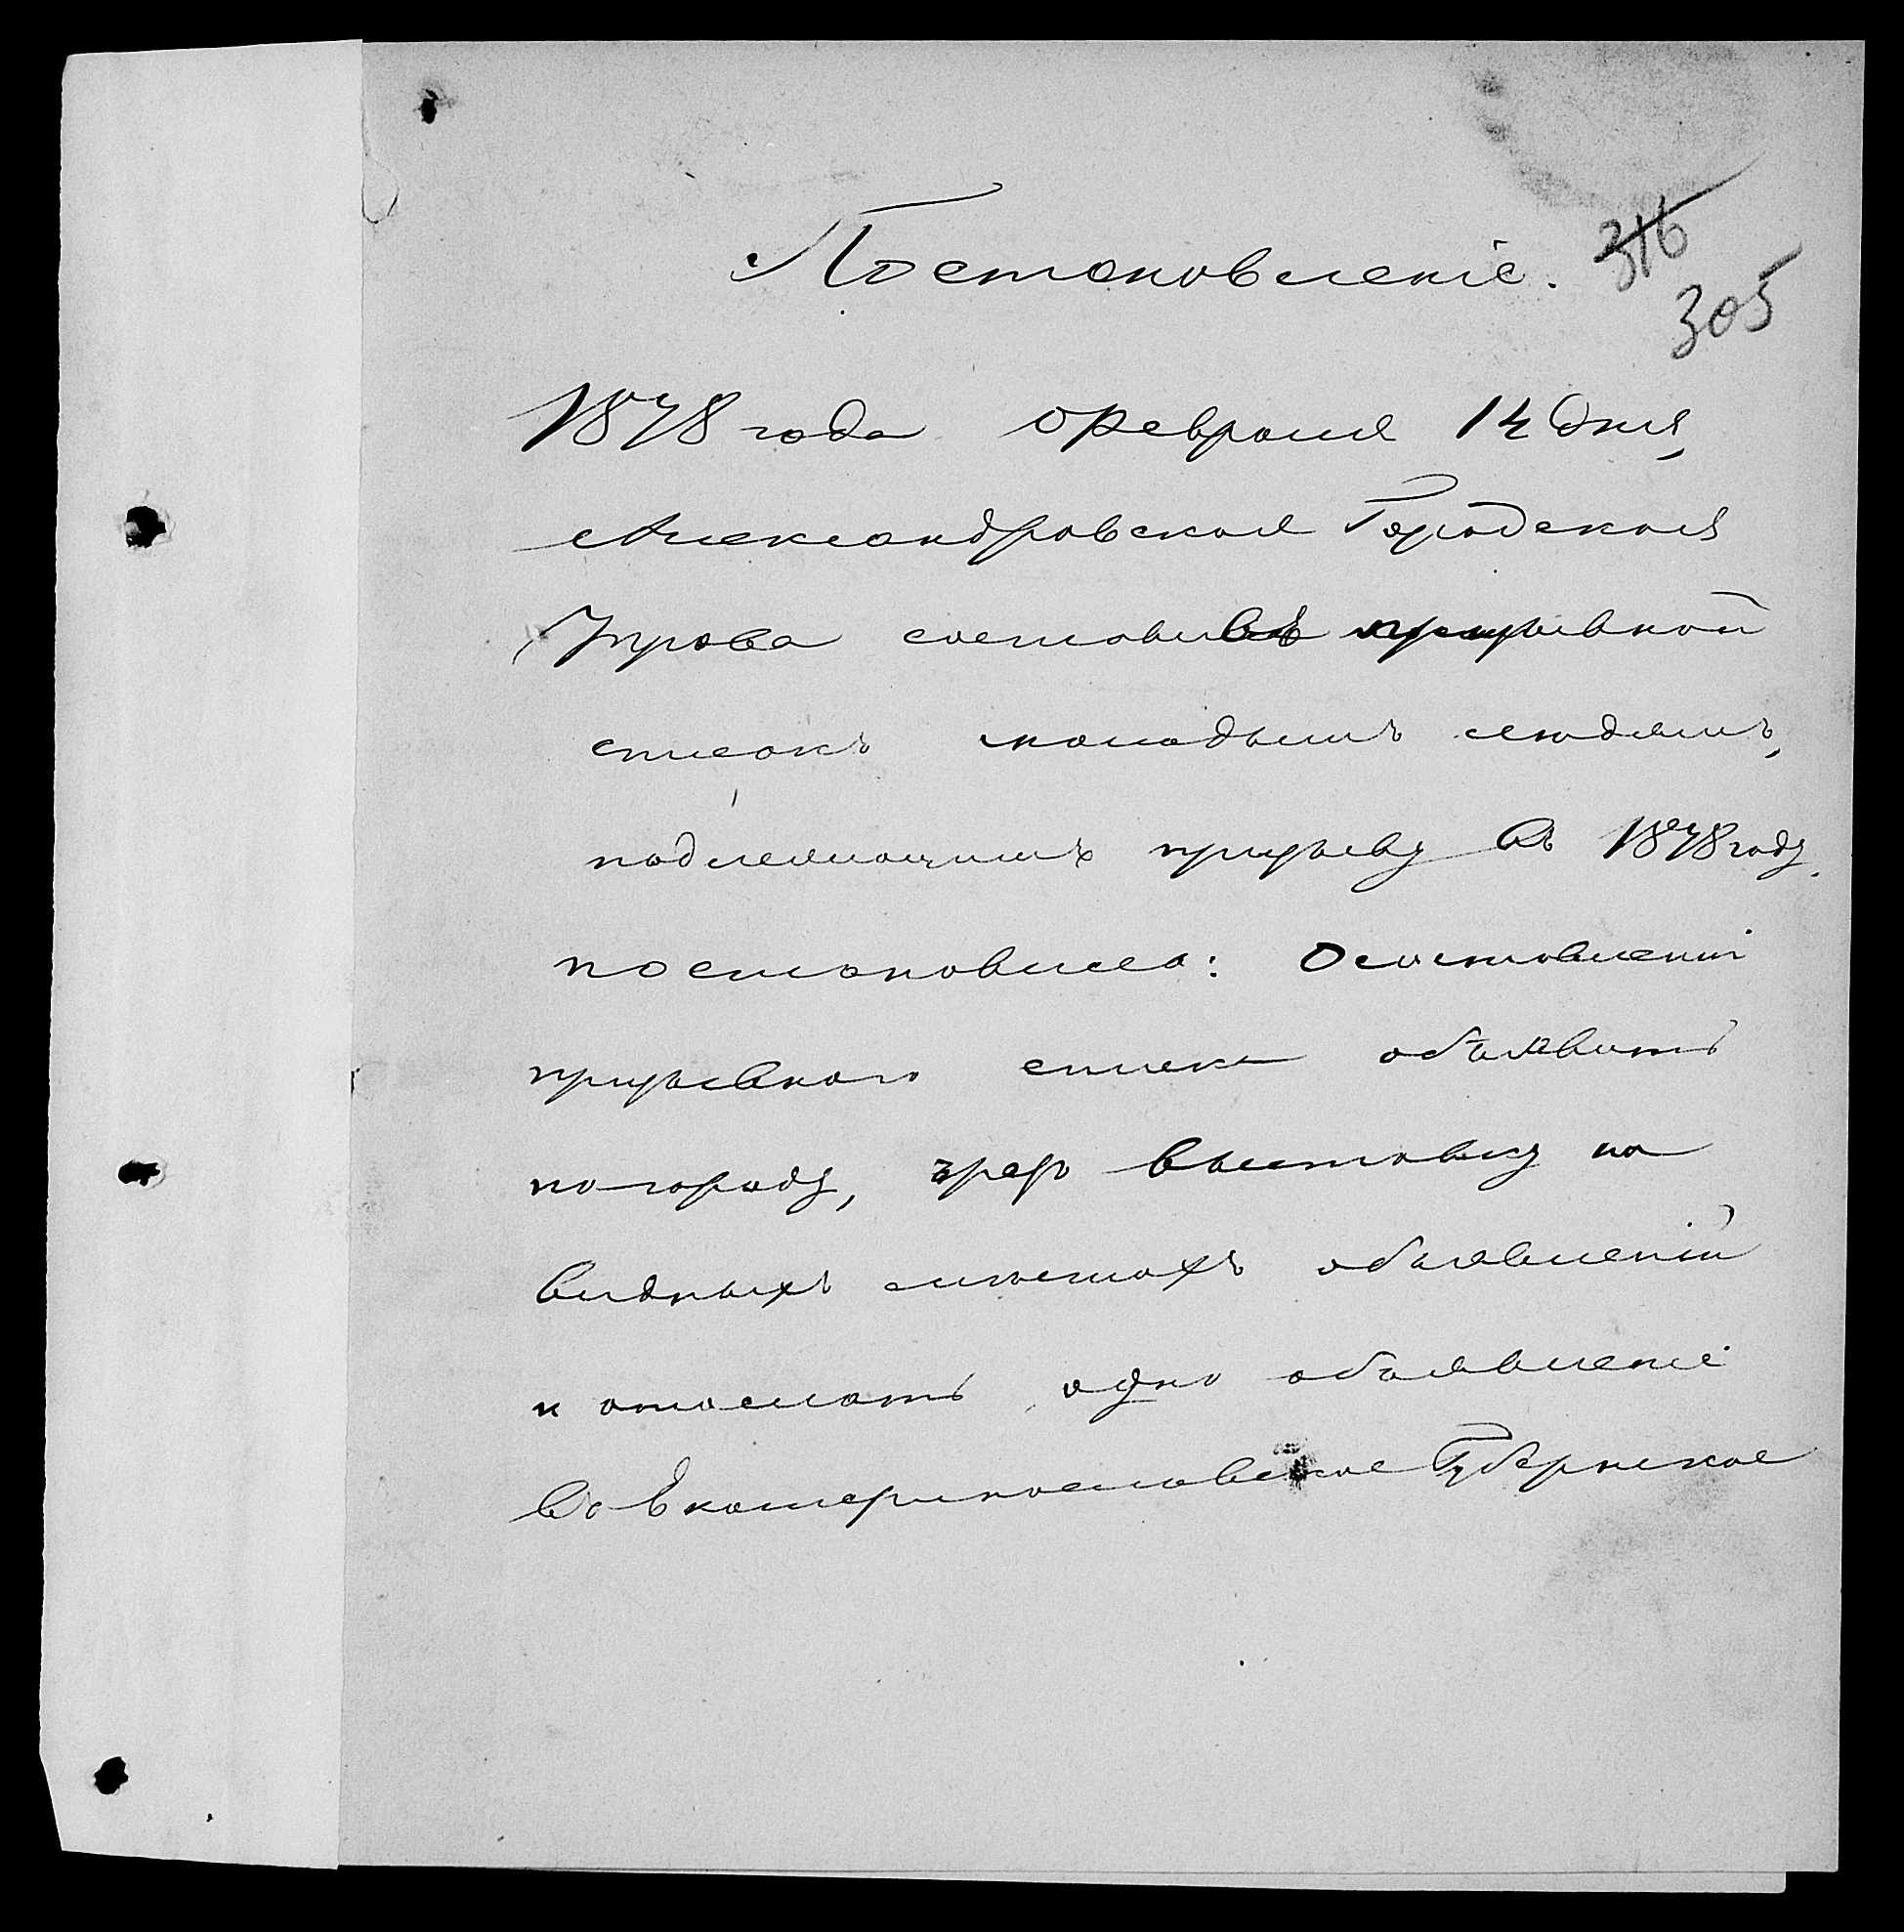 Постановленіе.
316
305
1878 года Февраля 14 дня,
Александровская Городская
Управа составивъ призывной
списокъ молодымъ людямъ,
подлежащимъ призыву въ 1878 году,
постановила: О составленіи
призывнаго списка объявить
по городу, чрезъ выставку на
видныхъ местахъ объявленій
и отослать одно объявленіе
въ Екатеринославское Губернское